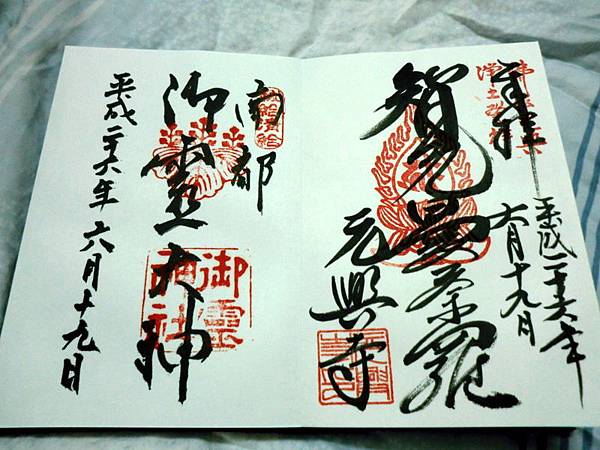 奉拝
平成二十六年
六月十九日
智光曼荼羅
元興寺
南都
御霊大神
御霊
神社
平成二十六年六月十九日